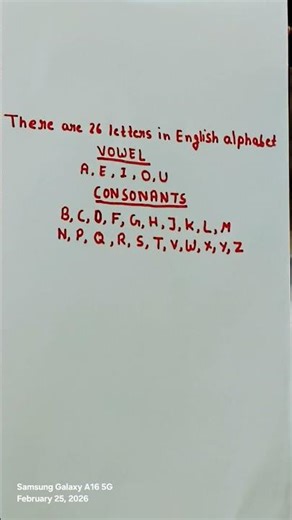 There are 26 letters in English alphabet
VOWEL
A, E, I, O, U
CONSONANTS
B, C, D, F, G, H, J, K, L, M
N, P, Q, R, S, T, V, W, X, Y, Z
Samsung Galaxy A16 5G
February 25, 2026